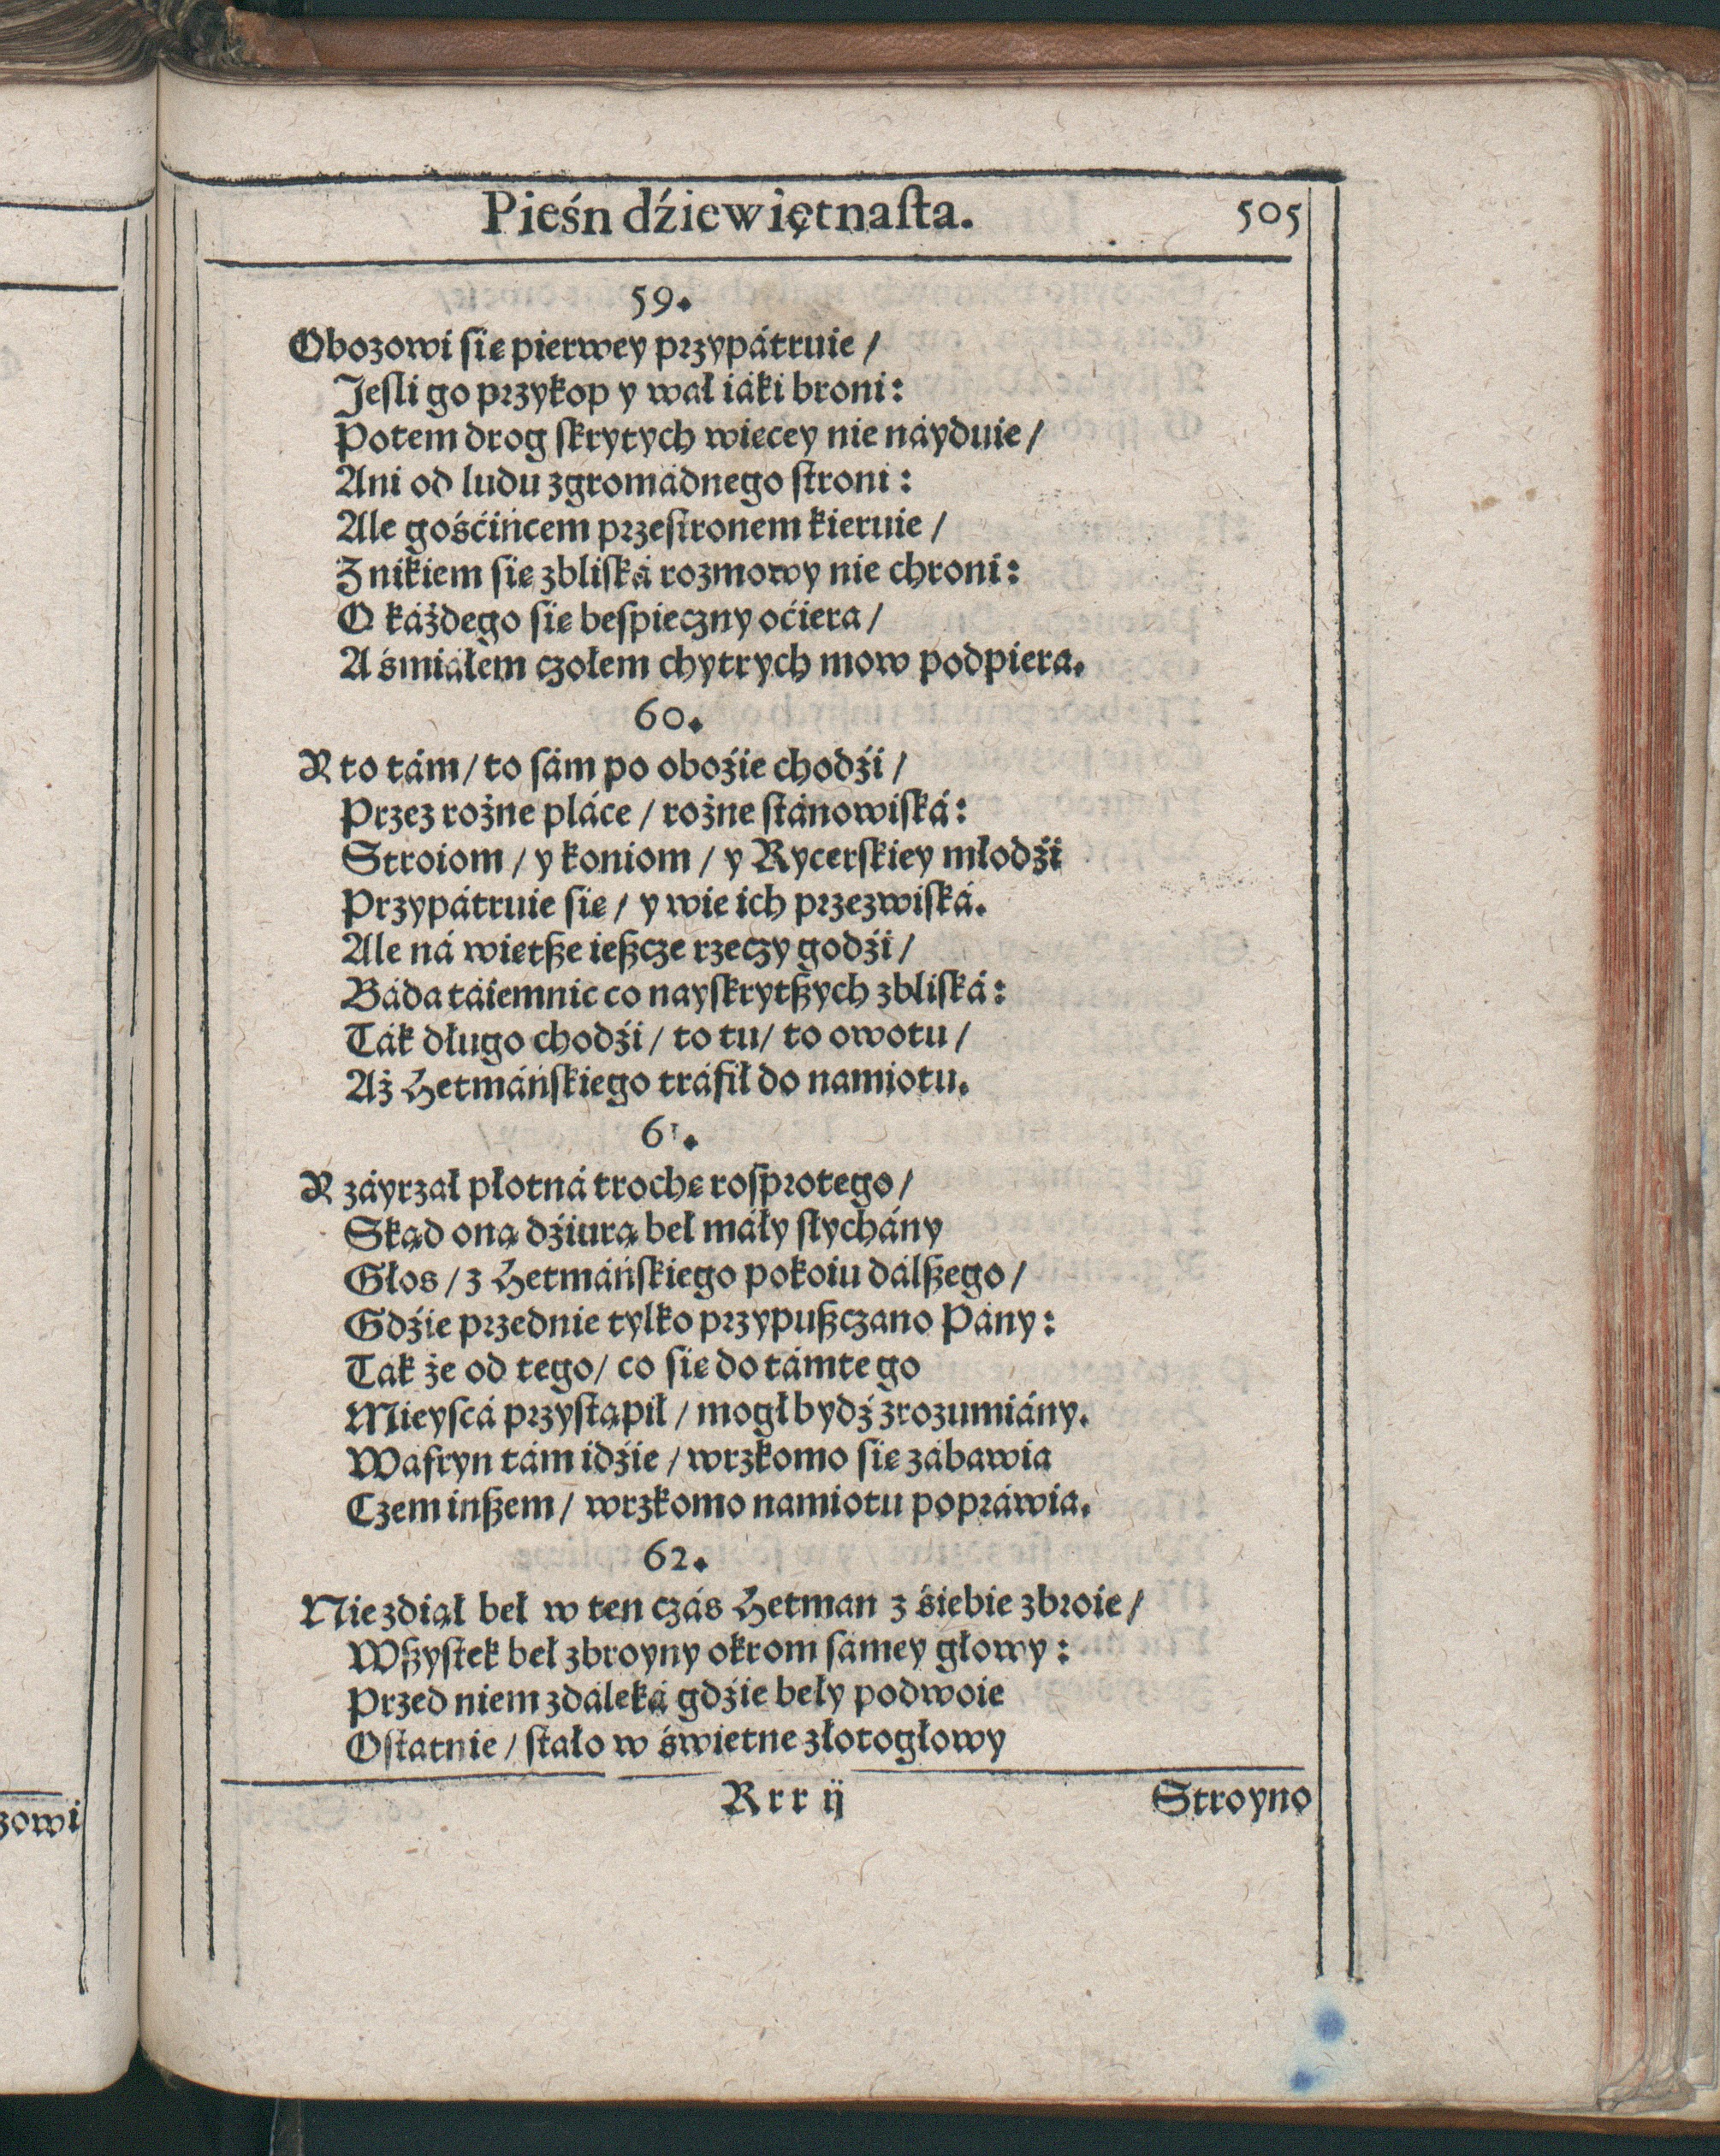 Pieśn dźiewiętnaſta. 505
59.
Obozowi ſię pierwey przypátruie /
Jeſli go przykop y wał iáki broni:
Potem drog ſkrytych więcey nie náyduie /
Ani od ludu zgromádnego ſtroni:
Ale gośćińcem przeſtronem kieruie /
Z nikiem ſię zbliſká rozmowy nie chroni:
O káżdego ſię beſpieczny oćiera /
A śmiáłem czołem chytrych mow podpiera.
60.
Y to tám / to ſám po oboźie chodźi /
Przez rożne pláce / rożne ſtánowiſká:
Stroiom / y koniom / y Rycerſkiey młodźi
Przypátruie ſię / y wie ich przezwiſká.
Ale ná więtße ießcze rzeczy godźi /
Báda táiemnic co nayſkrytßych zbliſká:
Ták długo chodźi / to tu / to owotu /
Aż Hetmáńſkiego tráfił do namiotu.
61.
Y záyrzał płotná trochę roſprotego /
Skąd oną dźiurą beł máły ſłychány
Głos / z Hetmáńſkiego pokoiu dálßego /
Gdźie przednie tylko przypußczano Pány:
Ták że od tego / co ſię do támtego
Mieyſcá przyſtąpił / mogł bydź zrozumiány.
Wafryn tám idźie / wrzkomo ſię zábawia
Czem inßem / wrzkomo namiotu popráwia.
62.
Nie zdiął beł w ten czás Hetman z śiebie zbroie /
Wßyſtek beł zbroyny okrom ſámey głowy:
Przed niem zdáleká gdźie beły podwoie
Oſtatnie / ſtało w świetne złotogłowy
Rrr ij Stroyno
zowi